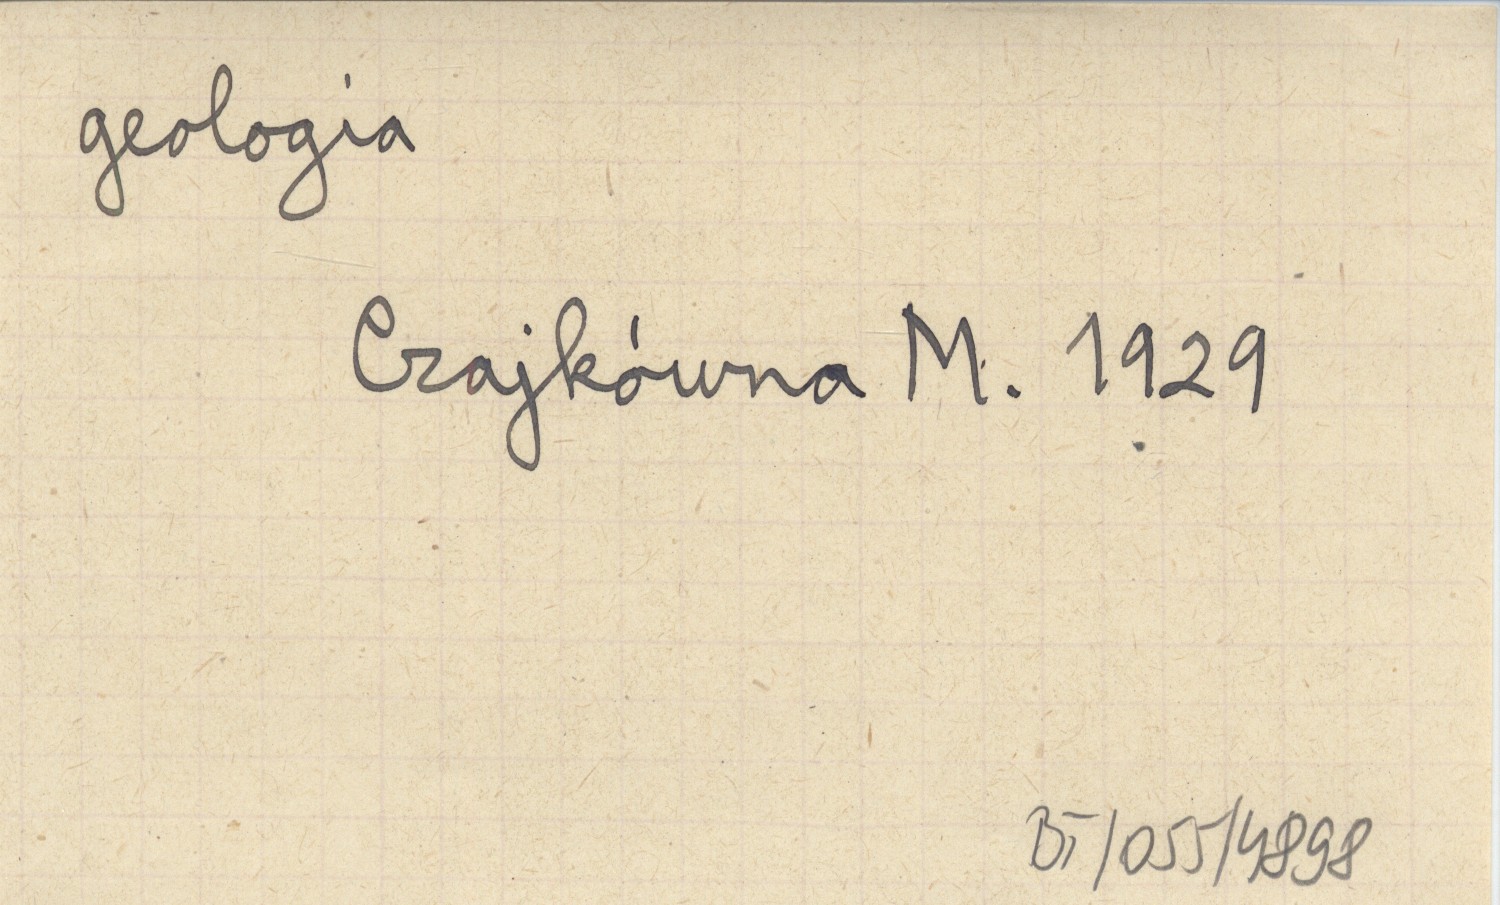 geologia
Czajkówna M. 1929
BT/055/4898